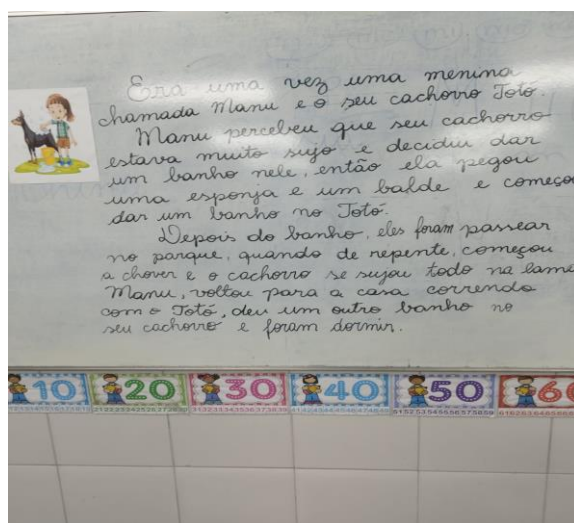 Era uma vez uma menina
chamada Manu e o seu cachorro Totó.
Manu percebeu que seu cachorro
estava muito sujo e decidiu dar
um banho nele, então ela pegou
uma esponja e um balde e começou
dar um banho no Totó.
Depois do banho, eles foram passear
no parque, quando de repente, começou
a chover e o cachorro se sujou todo na lama
Manu, voltou para a casa correndo
com o Totó, deu um outro banho no
seu cachorro e foram dormir.
10 20 30 40 50 60